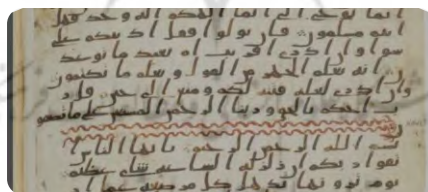 انما يوحى الي انما الهكم اله وحد فهل
انتم مسلمون فان تولوا فقل اذنتكم على
سوا وان ادري اقريب ام بعيد ما توعد
ون انه يعلم الجهر من القول ويعلم ما تكتمون
وان ادري لعله فتنة لكم ومتع الى حين قل ر
ب احكم بالحق وربنا الرحمن المستعن على ما تصفو
ن
بسم الله الرحمن الرحيم يايها الناس ا
تقوا ربكم ان زلزلة الساعة شاي عظيم
يوم ترونها تذهل كل مرضعة عما ار